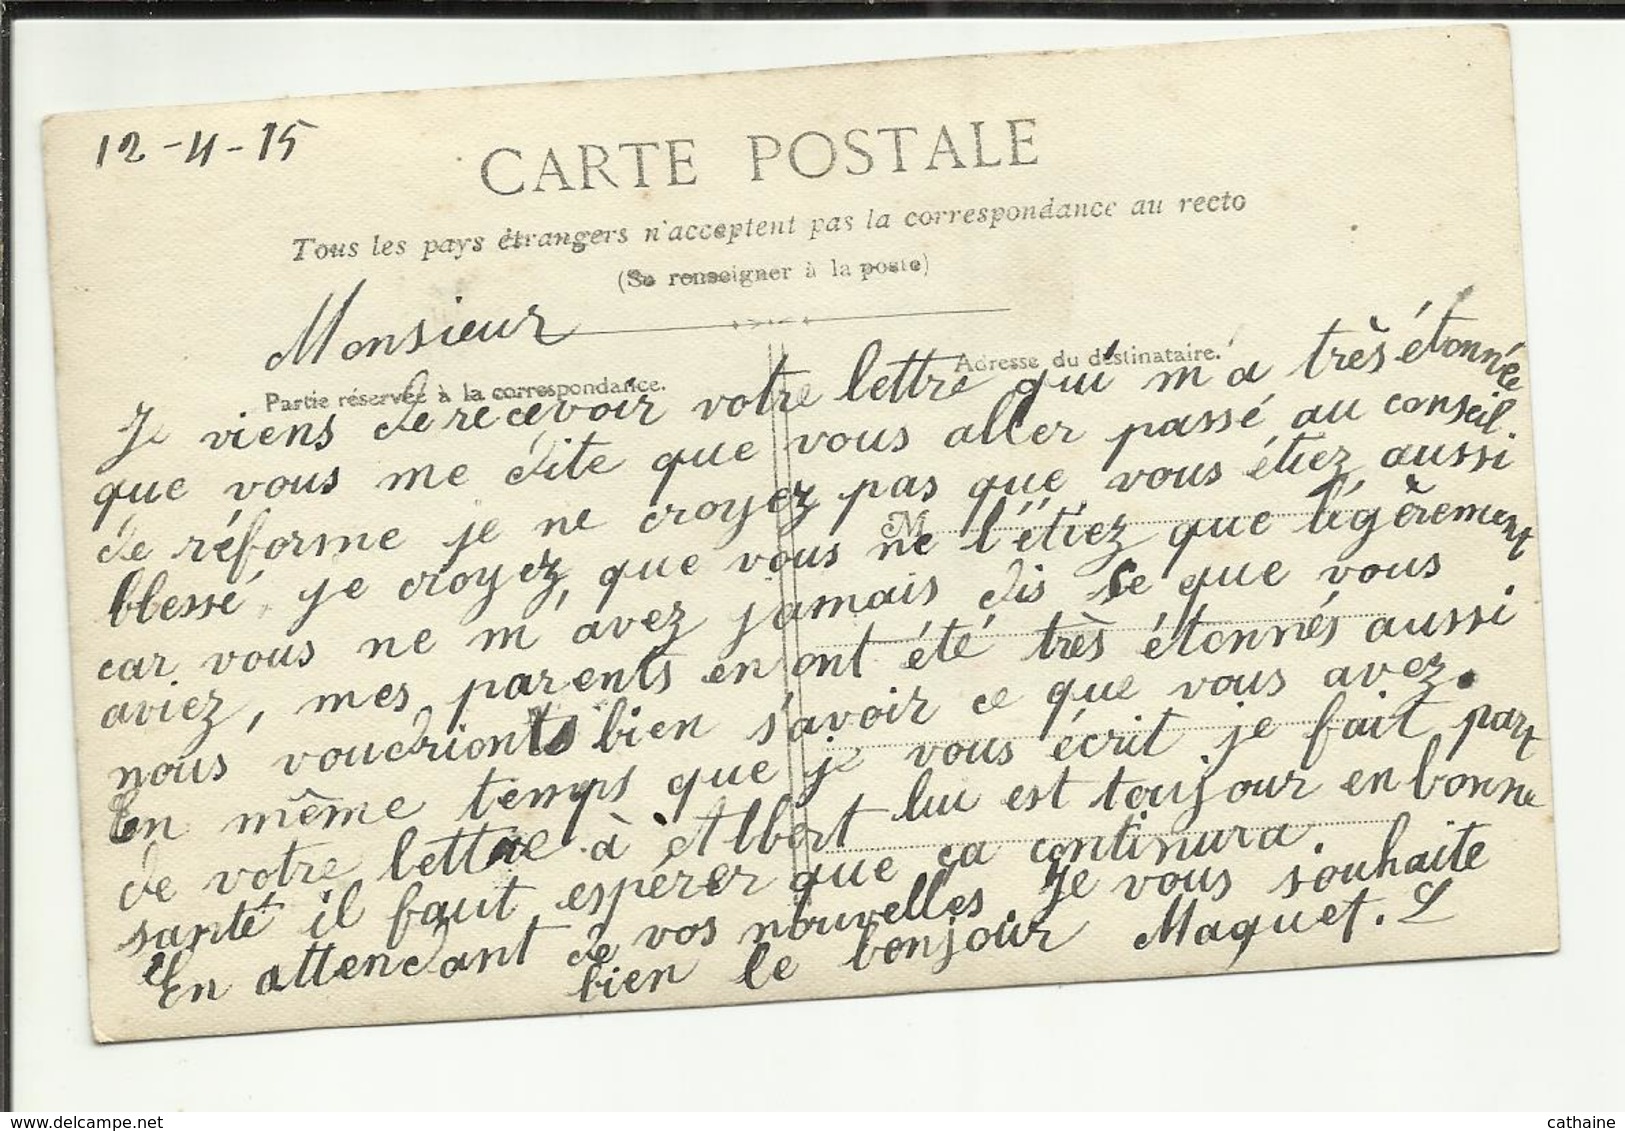 12-4-15
CARTE POSTALE
Tous les pays étrangers n'acceptent pas la correspondance au recto
(Se renseigner à la poste)
Monsieur
Partie réservée à la correspondance.
Adresse du destinataire.
M
Je viens de recevoir votre lettre qui m'a très étonnée
que vous me dite que vous aller passé au conseil
de réforme je ne croyez pas que vous étiez aussi
blessé, je croyez, que vous ne l'étiez que légèrement
car vous ne m'avez jamais dis ce que vous
aviez, mes parents en ont été très étonnés aussi
nous voudrions bien s'avoir ce que vous avez.
En même temps que je vous écrit je fait part
de votre lettre à Albert lui est toujour en bonne
santé il faut espérer que ça continura.
En attendant de vos nouvelles je vous souhaite
bien le bonjour Maquet. L
cathaine